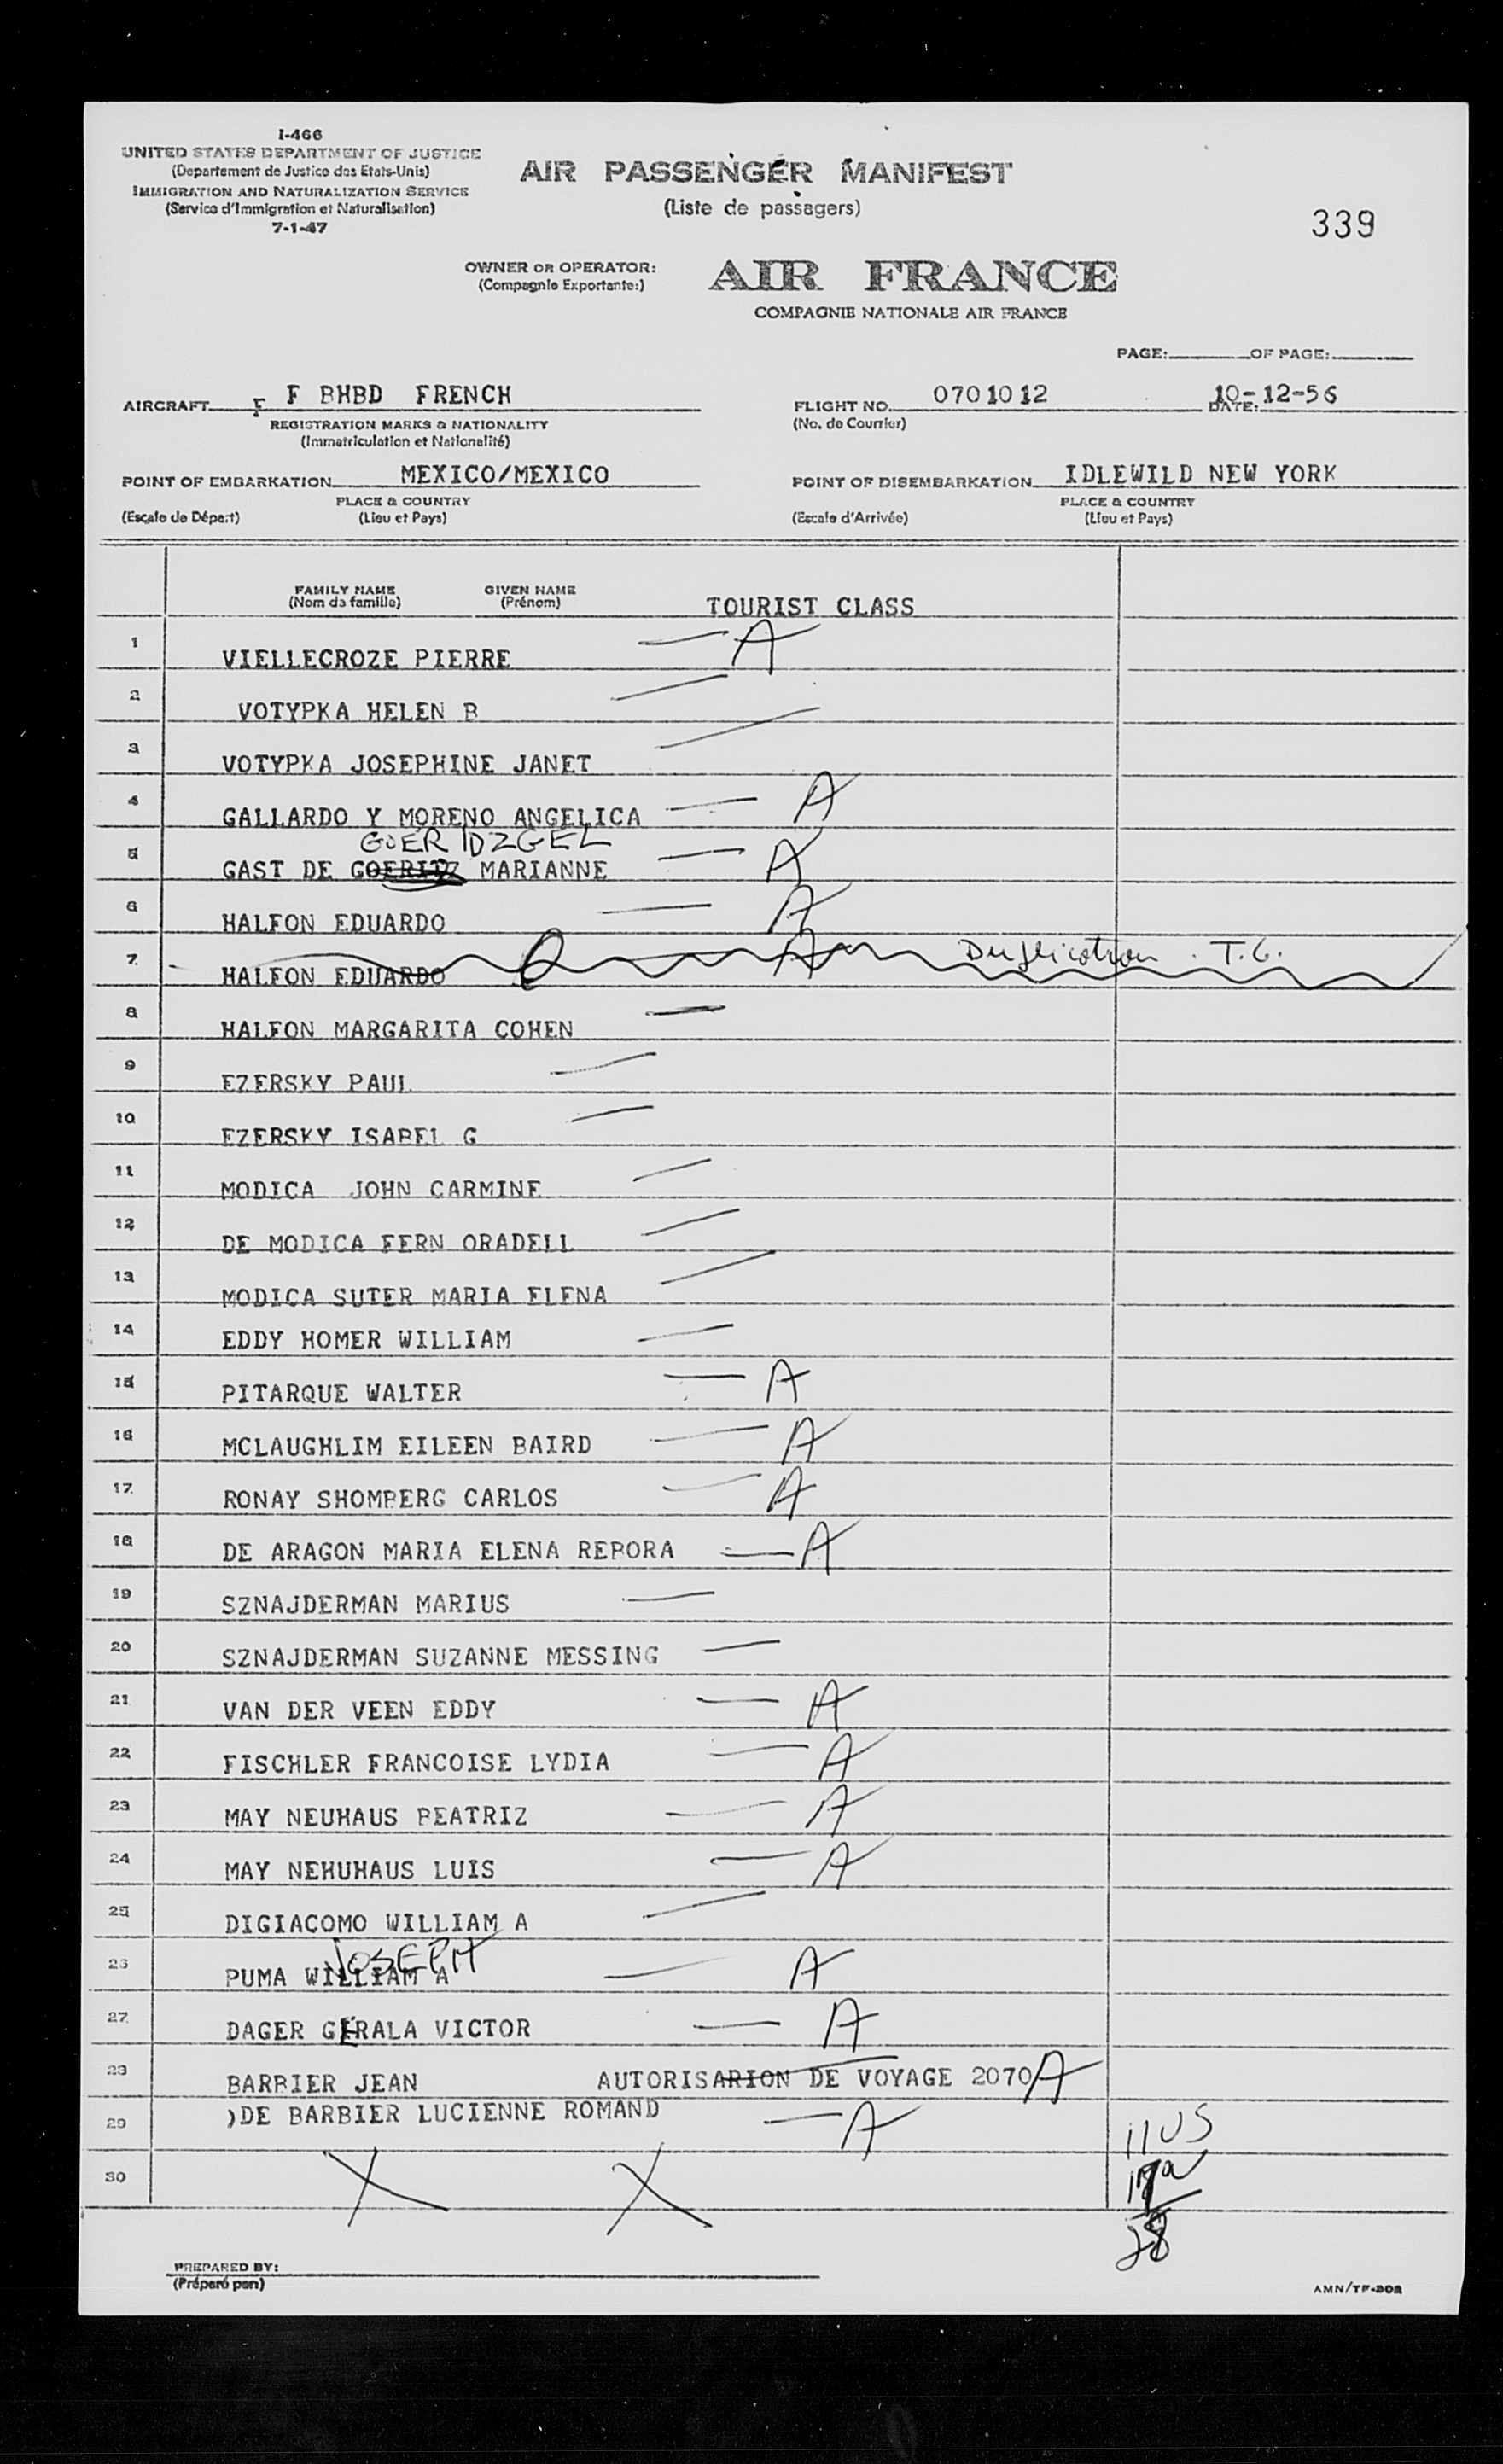 I-466
UNITED STATES DEPARTMENT OF JUSTICE
(Departement de Justice des Etats-Unis)
IMMIGRATION AND NATURALIZATION SERVICE
(Service d'Immigration et Naturalisation)
7-1-47
AIR PASSENGER MANIFEST
(Liste de passagers)
339
OWNER OR OPERATOR: AIR FRANCE
(Compagnie Exportante:)
COMPAGNIE NATIONALE AIR FRANCE
PAGE: OF PAGE:
AIRCRAFT F F BHBD FRENCH FLIGHT NO. 0701012 DATE: 10-12-56
REGISTRATION MARKS & NATIONALITY (No. de Courrier)
(Immatriculation et Nationalité)
POINT OF EMBARKATION MEXICO/MEXICO POINT OF DISEMBARKATION IDLEWILD NEW YORK
PLACE & COUNTRY PLACE & COUNTRY
(Escale de Départ) (Lieu et Pays) (Escale d'Arrivée) (Lieu et Pays)
FAMILY NAME GIVEN NAME
(Nom de famille) (Prénom) TOURIST CLASS
1 VIELLECROZE PIERRE — A
2 VOTYPKA HELEN B —
3 VOTYPKA JOSEPHINE JANET —
4 GALLARDO Y MORENO ANGELICA — A
GOERIDZGEL
5 GAST DE GOERITZ MARIANNE — A
6 HALFON EDUARDO — A
7 HALFON EDUARDO A Duplication . T.C.
8 HALFON MARGARITA COHEN —
9 EZERSKY PAUL —
10 EZERSKY ISABEL G —
11 MODICA JOHN CARMINE —
12 DE MODICA FERN ORADELL —
13 MODICA SUTER MARIA ELENA —
14 EDDY HOMER WILLIAM —
15 PITARQUE WALTER — A
16 MCLAUGHLIM EILEEN BAIRD — A
17 RONAY SHOMBERG CARLOS — A
18 DE ARAGON MARIA ELENA REBORA — A
19 SZNAJDERMAN MARIUS —
20 SZNAJDERMAN SUZANNE MESSING —
21 VAN DER VEEN EDDY — A
22 FISCHLER FRANCOISE LYDIA — A
23 MAY NEUHAUS BEATRIZ — A
24 MAY NEHUHAUS LUIS — A
25 DIGIACOMO WILLIAM A —
JOSEPH
26 PUMA WILLIAM A — A
27 DAGER GERALA VICTOR — A
28 BARBIER JEAN AUTORISARION DE VOYAGE 2070 A
29 )DE BARBIER LUCIENNE ROMAND — A 11 US
30 X X 17 a
28
PREPARED BY:
(Préparé par)
AMN/TF-302